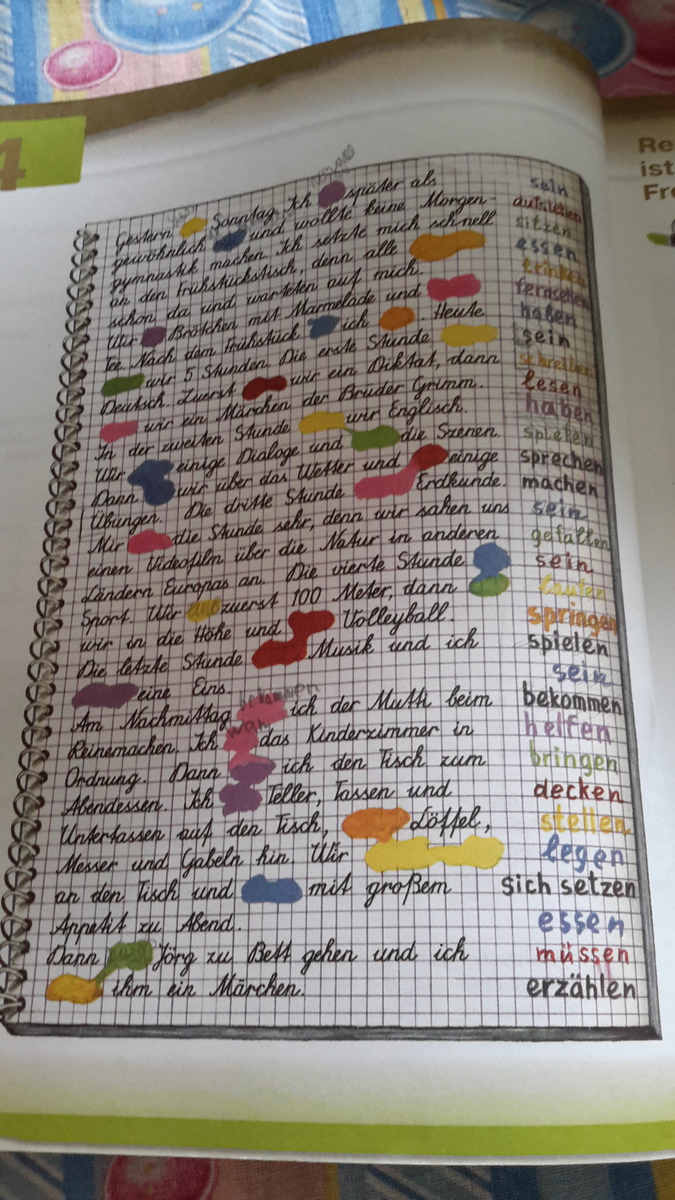 4
Gestern Sonntag. Ich später als sein
gewöhnlich und wollte keine Morgen- aufstehen
gymnastik machen. Ich setzte mich schnell sitzen
an den Frühstückstisch, denn alle essen
schon da und warteten auf mich. trinken
Wir Brötchen mit Marmelade und fernsehen
Tee. Nach dem Frühstück ich . Heute haben
wir 5 Stunden. Die erste Stunde sein
Deutsch. Zuerst wir ein Diktat, dann schreiben
wir ein Märchen der Brüder Grimm. lesen
In der zweiten Stunde wir Englisch. haben
Wir einige Dialoge und die Szenen. spielen
Dann wir über das Wetter und einige sprechen
Übungen. Die dritte Stunde Erdkunde. machen
Mir die Stunde sehr, denn wir sahen uns sein
einen Videofilm über die Natur in anderen gefallen
Ländern Europas an. Die vierte Stunde sein
Sport. Wir zuerst 100 Meter, dann laufen
wir in die Höhe und Volleyball. springen
Die letzte Stunde Musik und ich spielen
eine Eins. sein
Am Nachmittag ich der Mutti beim bekommen
Reinemachen. Ich das Kinderzimmer in helfen
Ordnung. Dann ich den Tisch zum bringen
Abendessen. Ich Teller, Tassen und decken
Untertassen auf den Tisch, Löffel, stellen
Messer und Gabeln hin. Wir legen
an den Tisch und mit großem sich setzen
Appetit zu Abend. essen
Dann Jörg zu Bett gehen und ich müssen
ihm ein Märchen. erzählen
Re
ist
Fr